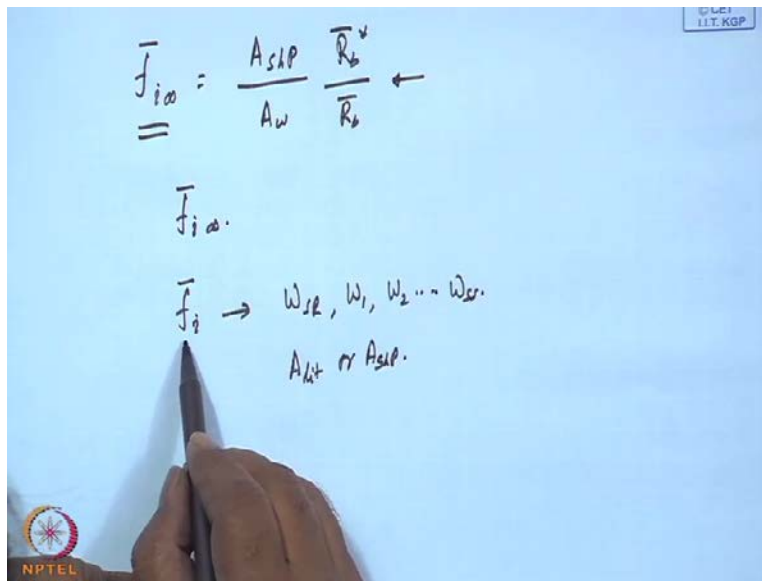 © CET
I.I.T. KGP
f̄i∞ = ASLP / Aw R̄b* / R̄b ←
f̄i∞.
f̄i → WSR, W1, W2 .... WSS.
Alit or ASLP.
NPTEL